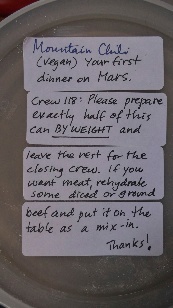 Mountain Chili
(vegan) Your first
dinner on Mars.
Crew 118: Please prepare
exactly half of this
can BY WEIGHT and
leave the rest for the
closing crew. If you
want meat, rehydrate
some diced or ground
beef and put it on the
table as a mix-in.
Thanks!